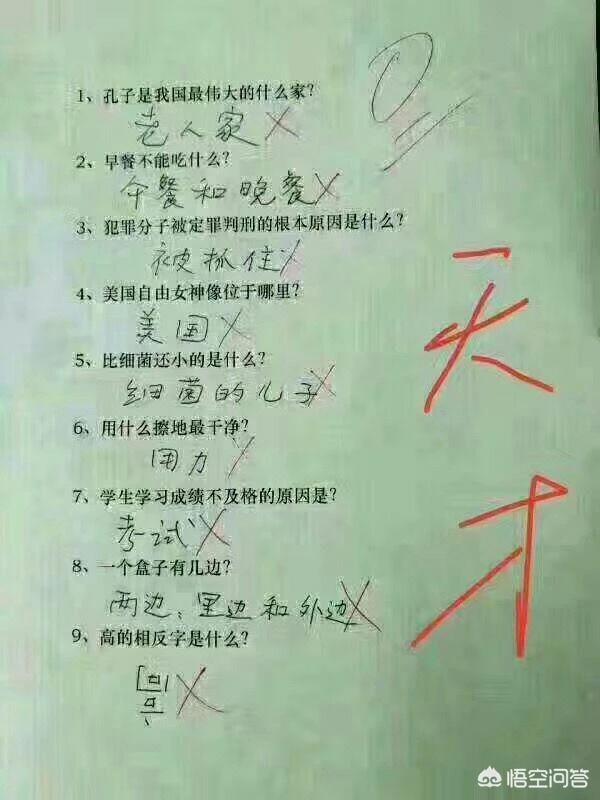 0
1、孔子是我国最伟大的什么家？
老人家 ×
2、早餐不能吃什么？
午餐和晚餐 ×
3、犯罪分子被定罪判刑的根本原因是什么？
被抓住 ×
4、美国自由女神像位于哪里？
美国 ×
5、比细菌还小的是什么？
细菌的儿子 ×
6、用什么擦地最干净？
用力 ×
7、学生学习成绩不及格的原因是？
考试 ×
8、一个盒子有几边？
两边、里边和外边 ×
9、高的相反字是什么？
×
天
才
悟空问答